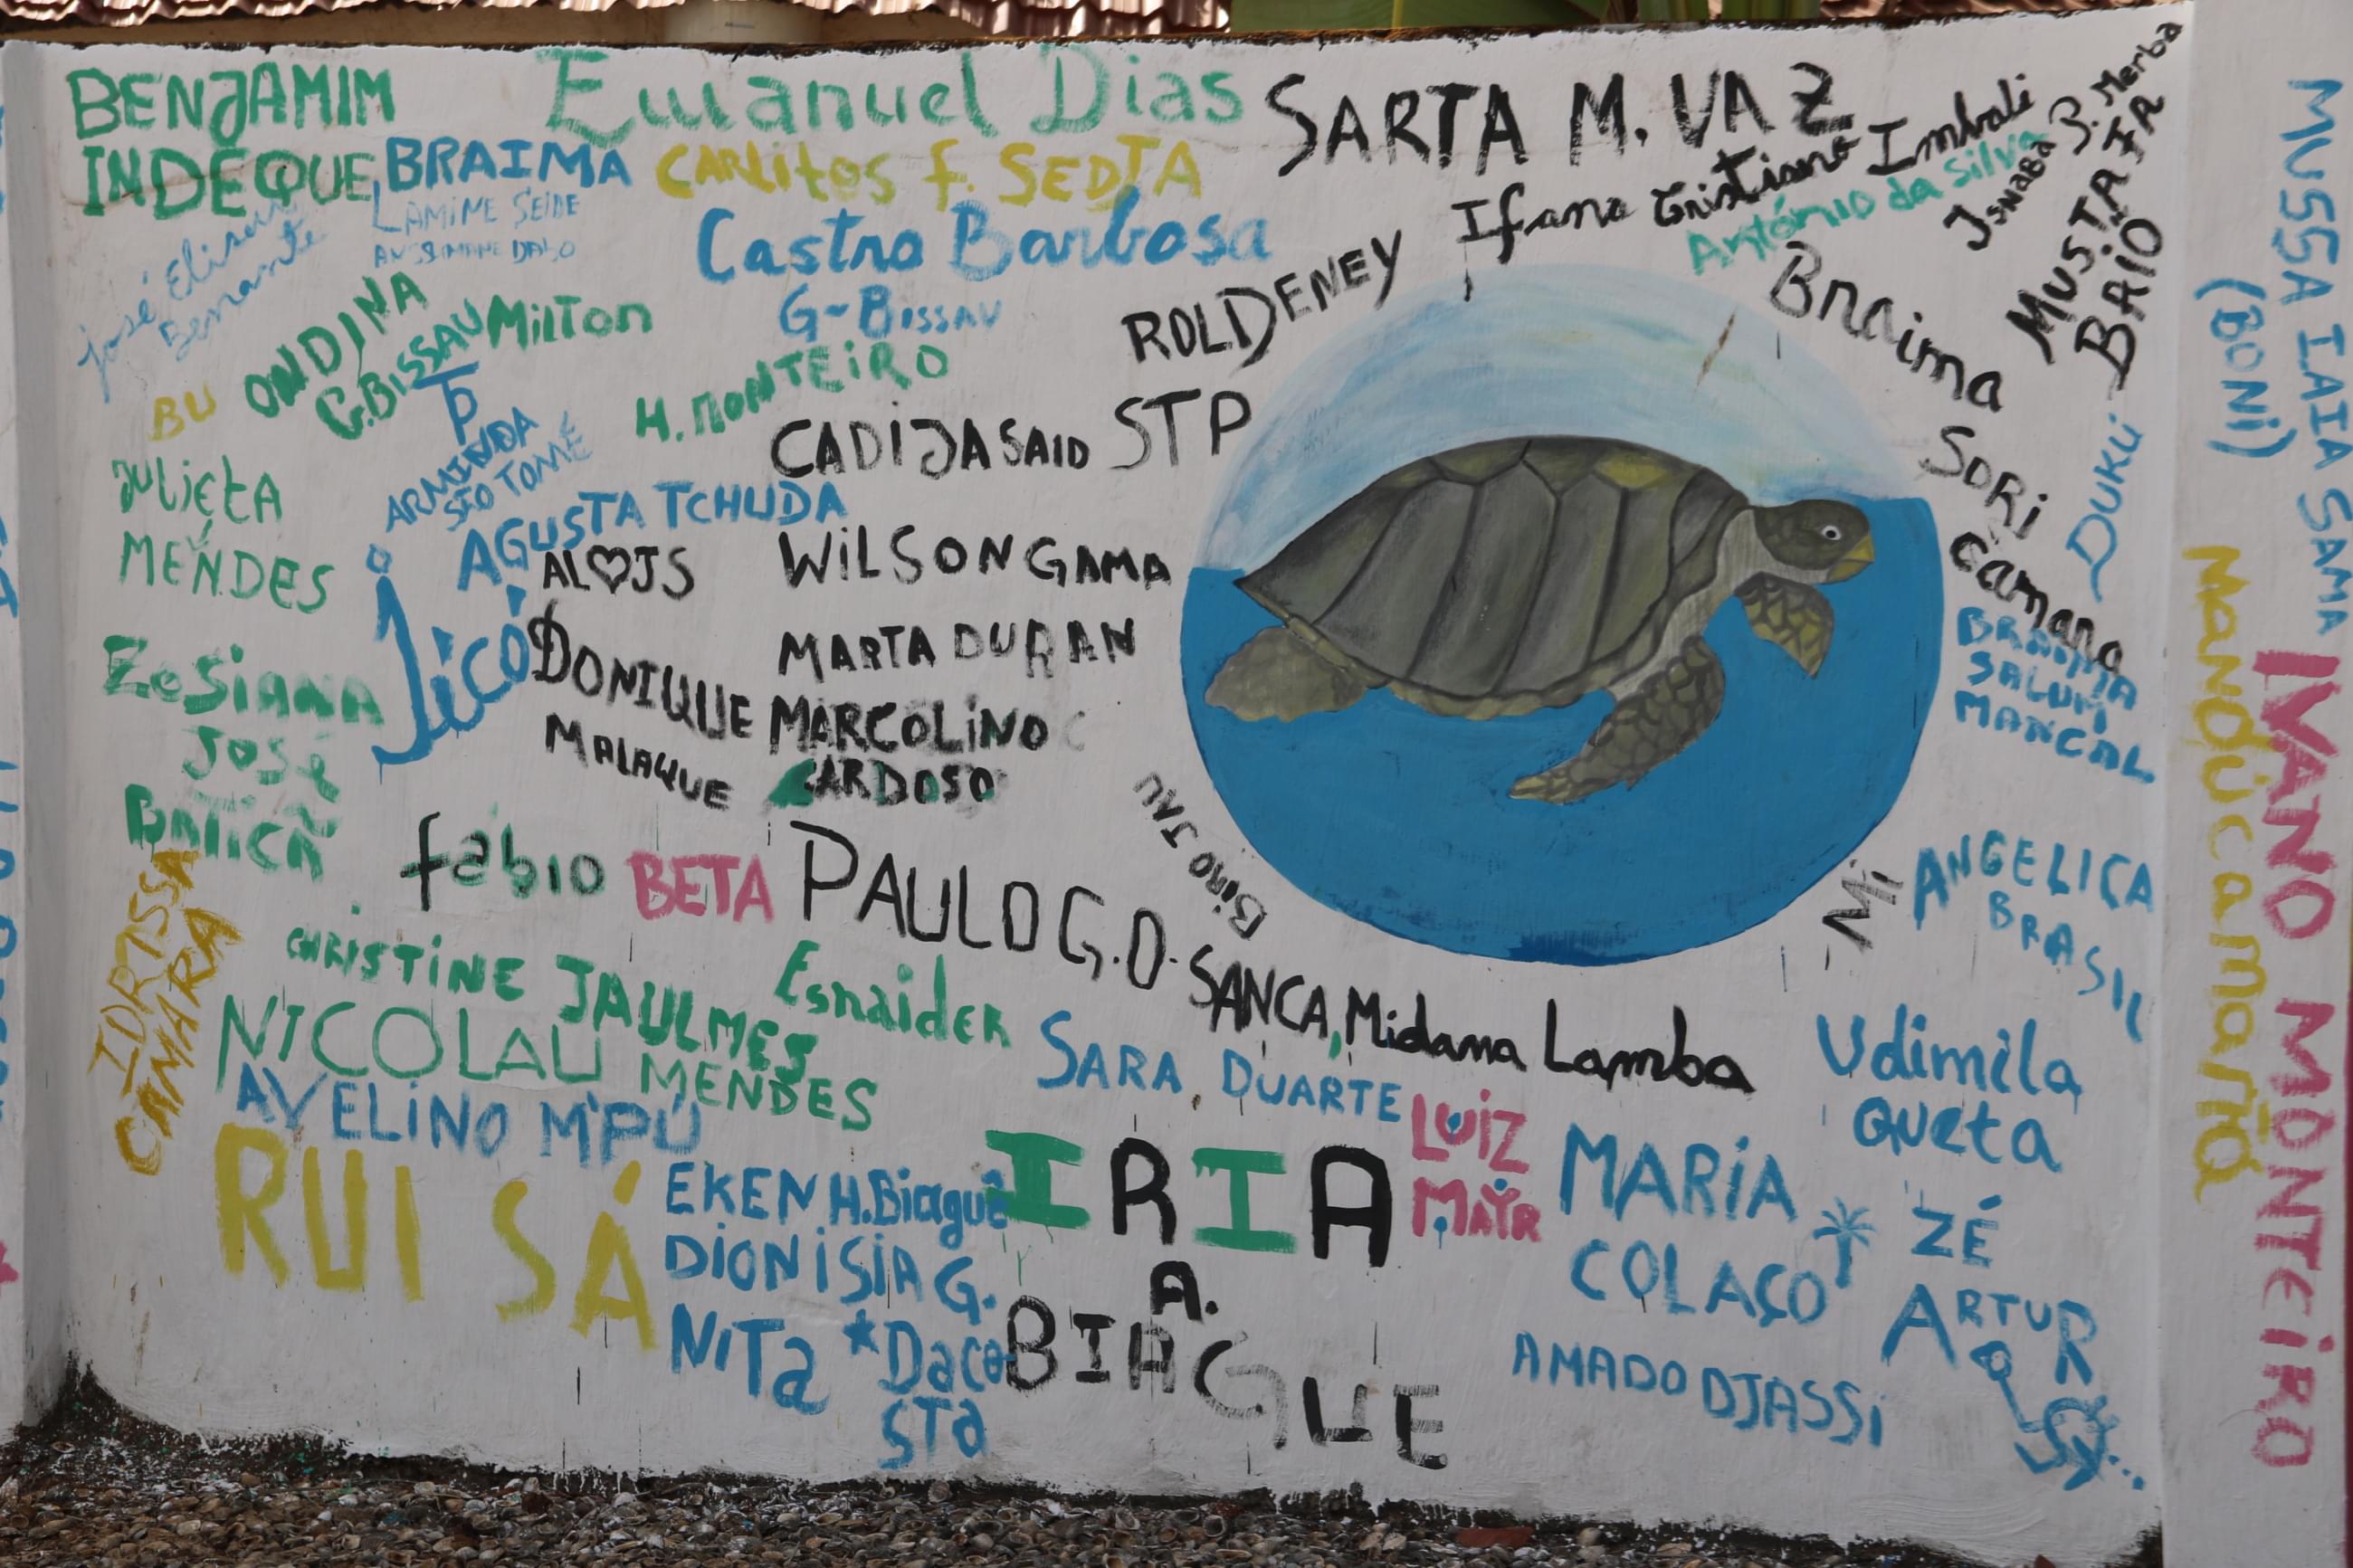 BENJAMIM
INDEQUE
Emanuel Dias
SARTA M. VAZ
BRAIMA
CARLITOS F. SEDJA
LAMINE SEIDE
José Eliseu
Castro Barbosa
G-BISSAU
Ifano Cristiano Imbali
António da Silva
JSNABA P. Merba
MUSTAFA
BAIO
ONDINA
G.BISSAU
MilTon
BU
H. MONTEiRO
ROLDENEY
STP
Braima
SORi
Camara
DUKU
ARMINDA
SÃO TOMÉ
CADIJA SAID
JULiEtA
MENDES
AGUSTA TCHUDA
AL♡JS
WiLSON GAMA
Jicó
DONIQUE
MALAQUE
MARTA DURAN
MARCOLiNO
CARDOSO
ZeSiANA
José
BRAIMA
SALUM
MANCAL
fábio
BETA
PAULO G.O. SANCA,
Midana Lamba
BiRO JAU
Mi
ANGELICA
BRASIL
IDRISSA
CAMARA
CHRISTINE JAULMES
Esnaider
NICOLAU MENDES
AVELiNO M'PÚ
SARA DUARTE
Udimila
Queta
RUI SÁ
EKEN H.Biaguê
DiONiSiA G.
NiTa *Daco
STa
IRIA
A.
BIAGUE
LUiZ
MAYR
MARiA
COLAÇO
ZÉ
ARTUR
AMADO DJASSi
MUSSA IAIA SAMA
(BONi)
IVANO MONTEiRO